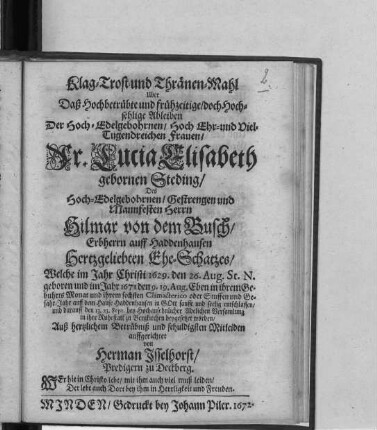 2.
Klag-Trost und Thränen-Mahl
Uber
Daß Hochbetrübte und frühzeitige/ doch Hoch-
sehlige Ableiben
Der Hoch-Edelgebohrnen/ Hoch Ehr-und Viel-
Tugendreichen Frauen/
Fr. Lucia Elisabeth
gebornen Steding/
Des
Hoch-Edelgebohrnen/ Gestrengen und
Mannfesten Herrn
Hilmar von dem Busch/
Erbherrn auff Haddenhausen
Hertzgeliebten Ehe-Schatzes/
Welche im Jahr Christi 1629. den 26. Aug. St. N.
geboren und im Jahr 1671 den 9. 19. Aug. Eben in ihrem Ge-
buhrts Monat und ihrem sechsten Climacterico oder Stuffen und Ge-
fahr Jahr auff dem Hause Haddenhausen in GOtt sanfft und seelig entschlaffen/
und darauff den 13. 23. Sept. bey Hochansehnlicher Adelichen Versamlung
in ihre Ruhestatt zu beygesetzet worden/
Auß hertzlichem Betrübnüß und schuldigsten Mitleiden
auffgerichtet
von
Herman Isselhorst/
Predigern zu Dretberg.
WEr hie in Christo lebt/ mit ihm auch viel muß leiden/
Der lebt auch Dort bey ihm in Herrligkeit und Freuden.
MINDEN/ Gedruckt bey Johann Piler. 1672.